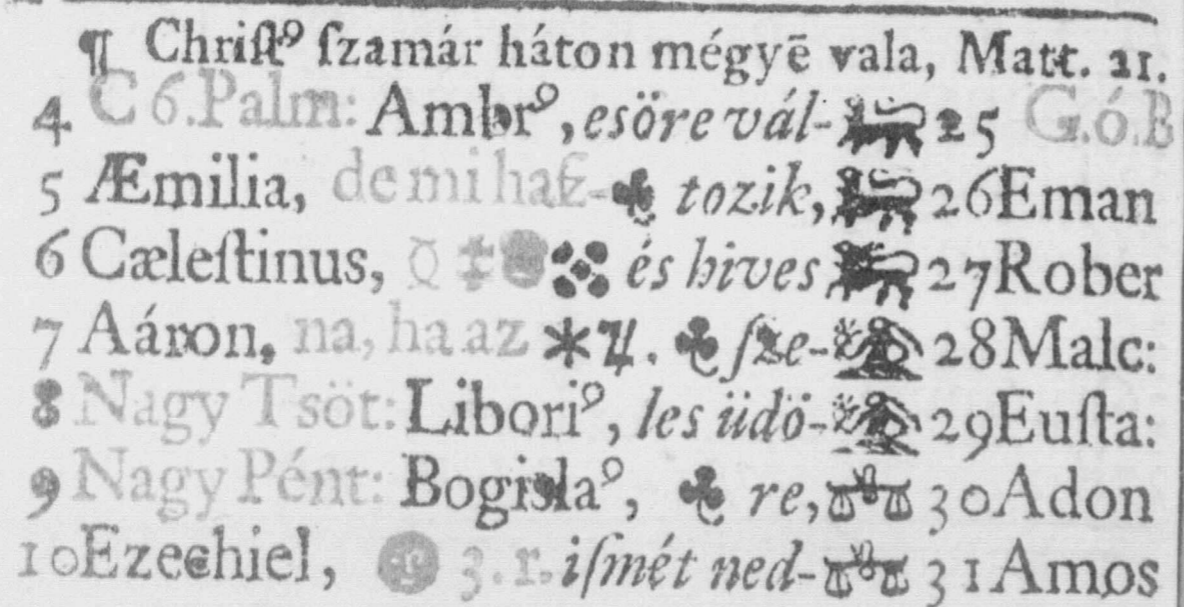 ¶ Chriſtꝰ ſzamár háton mégyē vala, Matt. 21.
4 C 6. Palm: Ambrꝰ, esöre vál- ♌ 25 G. ó. B
5 Æmilia, de mi haſz- ♣ tozik, ♌ 26 Eman
6 Cæleſtinus, és hives ♌ 27 Rober
7 Aáron, na, ha az ✱ ♃. ♣ ſze- ♍ 28 Malc:
8 Nagy Tsöt: Liboriꝰ, les üdö- ♍ 29 Euſta:
9 Nagy Pént: Bogislaꝰ, ♣ re, ♎ 30 Adon
10 Ezechiel, 3. r. iſmét ned- ♎ 31 Amos